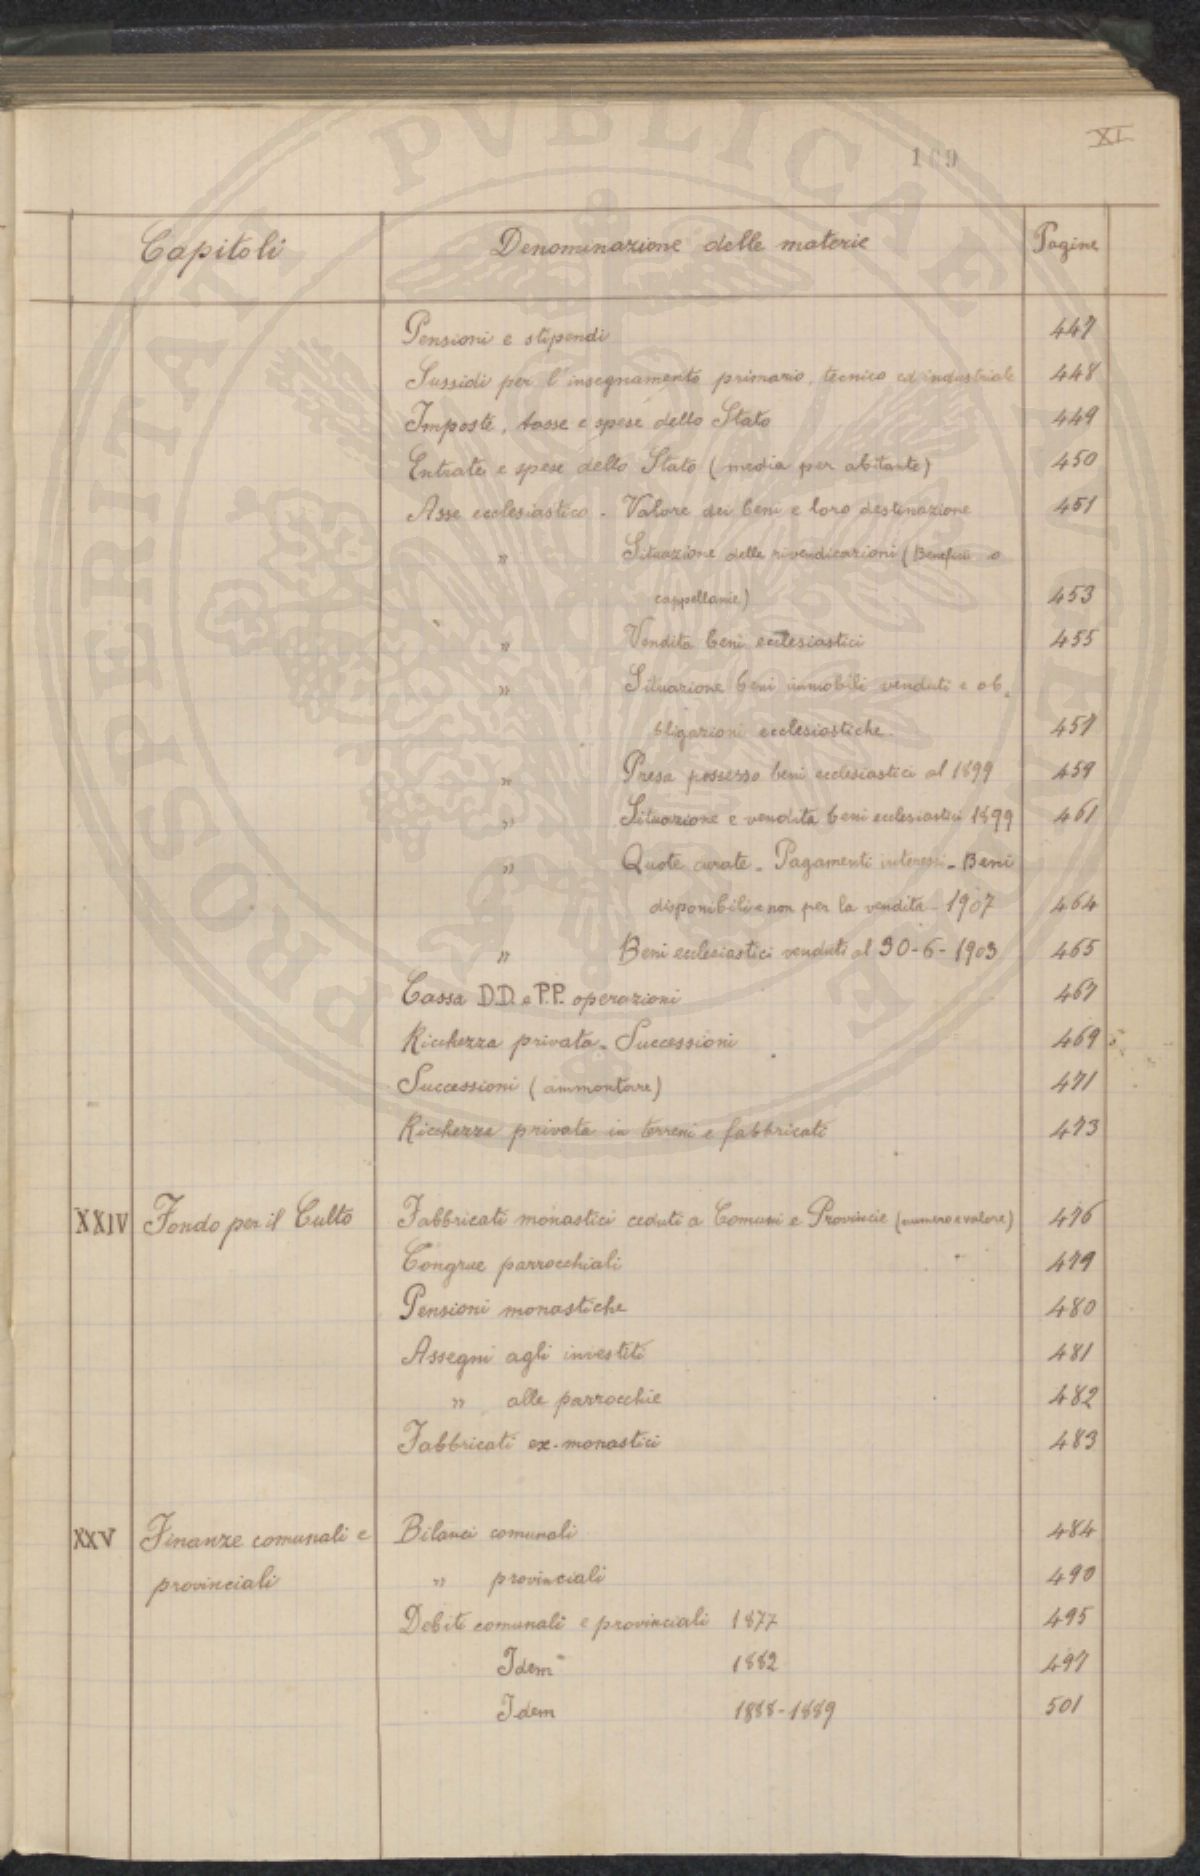 PROSPERITATI PVBLICAE
XI
169
Capitoli Denominazione delle materie Pagine
Pensioni e stipendi 447
Sussidi per l'insegnamento primario, tecnico ed industriale 448
Imposte, tasse e spese dello Stato 449
Entrate e spese dello Stato (media per abitante) 450
Asse ecclesiastico - Valore dei beni e loro destinazione 451
" Situazione delle rivendicazioni (Benefici o
cappellanie) 453
" Vendita beni ecclesiastici 455
" Situazione beni immobili venduti e ob-
bligazioni ecclesiastiche 457
" Presa possesso beni ecclesiastici al 1899 459
" Situazione e vendita beni ecclesiastici 1899 461
" Quote curate - Pagamenti interessi - Beni
disponibili e non per la vendita - 1907 464
" Beni ecclesiastici venduti al 30-6-1903 465
Cassa D.D. e P.P. operazioni 467
Ricchezza privata - Successioni 469
Successioni (ammontare) 471
Ricchezza privata in terreni e fabbricati 473
XXIV Fondo per il Culto Fabbricati monastici ceduti a Comuni e Provincie (numero e valore) 476
Congrue parrocchiali 479
Pensioni monastiche 480
Assegni agli investiti 481
" alle parrocchie 482
Fabbricati ex-monastici 483
XXV Finanze comunali e Bilanci comunali 484
provinciali " provinciali 490
Debiti comunali e provinciali 1877 495
Idem 1882 497
Idem 1888-1889 501